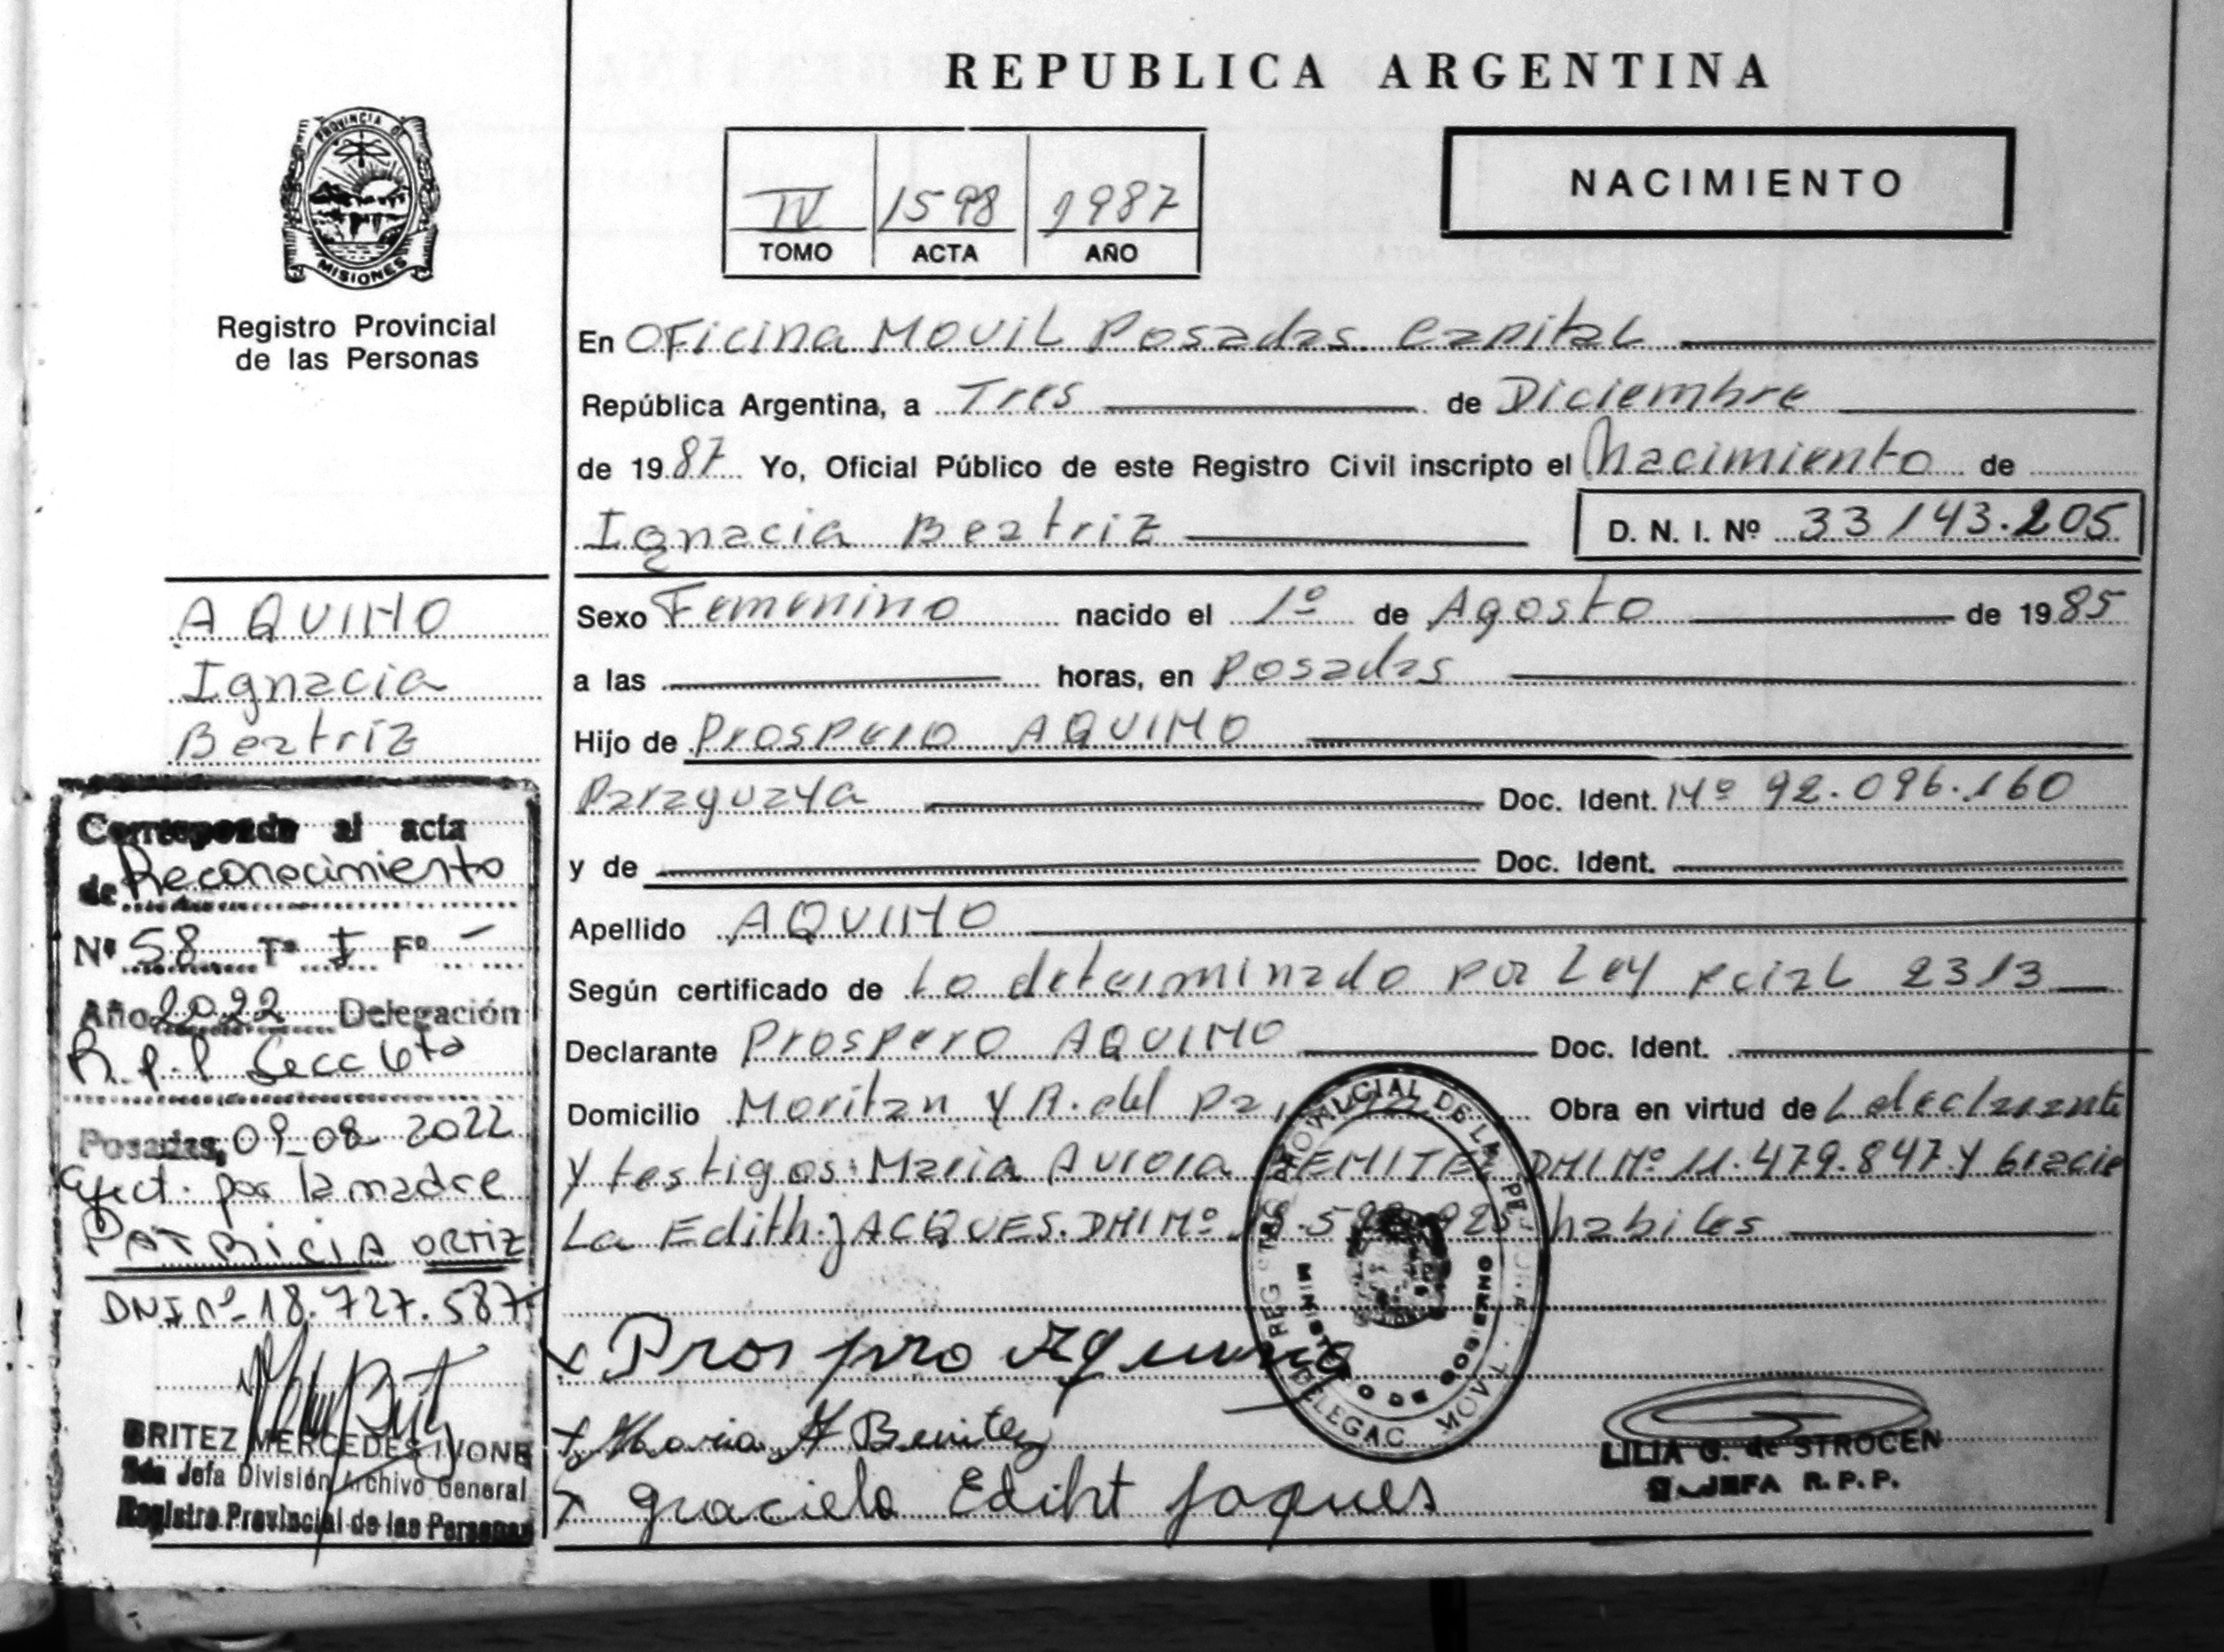 REPUBLICA ARGENTINA
PROVINCIA DE
MISIONES
Registro Provincial
de las Personas
IV 1598 1987
TOMO ACTA AÑO
NACIMIENTO
En Oficina Movil Posadas Capital
República Argentina, a Tres de Diciembre
de 1987 Yo, Oficial Público de este Registro Civil inscripto el Nacimiento de
Ignacia Beatriz D. N. I. Nº 33 143.205
AQUINO
Ignacia
Beatriz
Sexo Femenino nacido el 1º de Agosto de 1985
a las horas, en Posadas
Hijo de Prospero AQUINO
Paraguaya Doc. Ident. Nº 92.096.160
y de Doc. Ident.
Apellido AQUINO
Según certificado de Lo determinado por Ley pcial 2313
Declarante Prospero AQUINO Doc. Ident.
Domicilio Moritan y R. del Obra en virtud de L declarante
y testigos: Maria Aurora DNI Nº 11.479.847 y Gracie
La Edith JACQUES. DNI Nº habiles
Corresponde al acta
de Reconocimiento
Nº 58 Tº I Fº -
Año 2022 Delegación
R.P.P Secc 6ta
Posadas, 09-08-2022
efect. por la madre
PATRICIA ORTIZ
DNI nº 18.727.587
BRITEZ MERCEDES IVONE
2da Jefa División Archivo General
Registro Provincial de las Personas
x Prospro Aquino
x Maria A Benitez
x graciela Ediht Jaques
MINISTERIO DE GOBIERNO
LILIA G. de STROCEN
JEFA R.P.P.